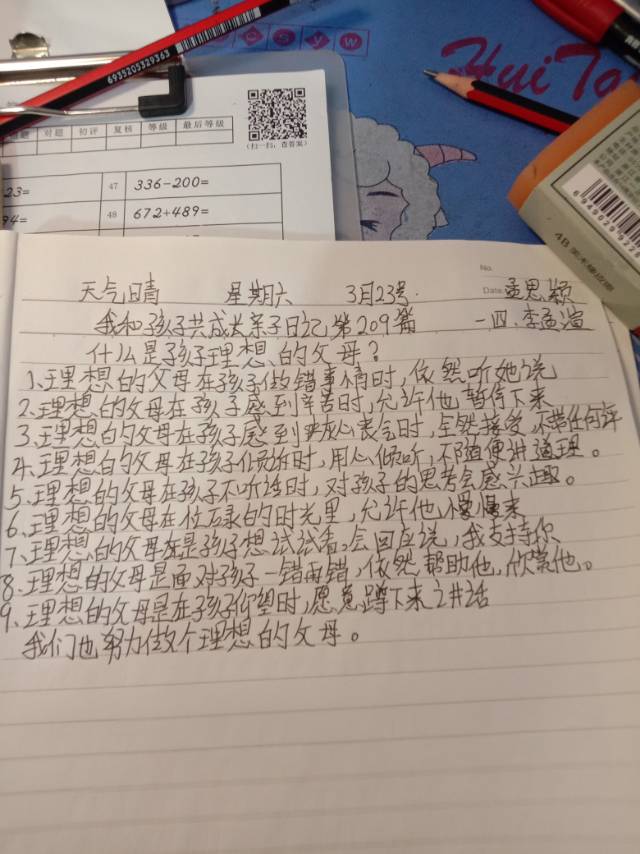 6935205329363
Q S Y W
HuiTa
对题 初评 复核 等级 最后等级
(扫一扫，查答案)
23=
47 336-200=
94=
48 672+489=
4B 美术橡皮擦
No.
Date
天气晴 星期六 3月23号 孟思颖
我和孩子共成长亲子日记第209篇 一四.李孟渲
什么是孩子理想的父母？
1、理想的父母在孩子做错事情时，依然听她说
2、理想的父母在孩子感到辛苦时，允许他暂停下来
3、理想的父母在孩子感到灰心丧气时，全然接受，不带任何评
4、理想的父母在孩子倾诉时，用心倾听，不随便讲道理。
5、理想的父母在孩子不听话时，对孩子的思考会感兴趣。
6、理想的父母在忙碌的时光里，允许他慢慢来
7、理想的父母在是孩子想试试看。会回应说，我支持你
8、理想的父母是面对孩子一错再错，依然帮助他，欣赏他。
9、理想的父母是在孩子仰望时，愿意蹲下来讲话
我们也努力做个理想的父母。